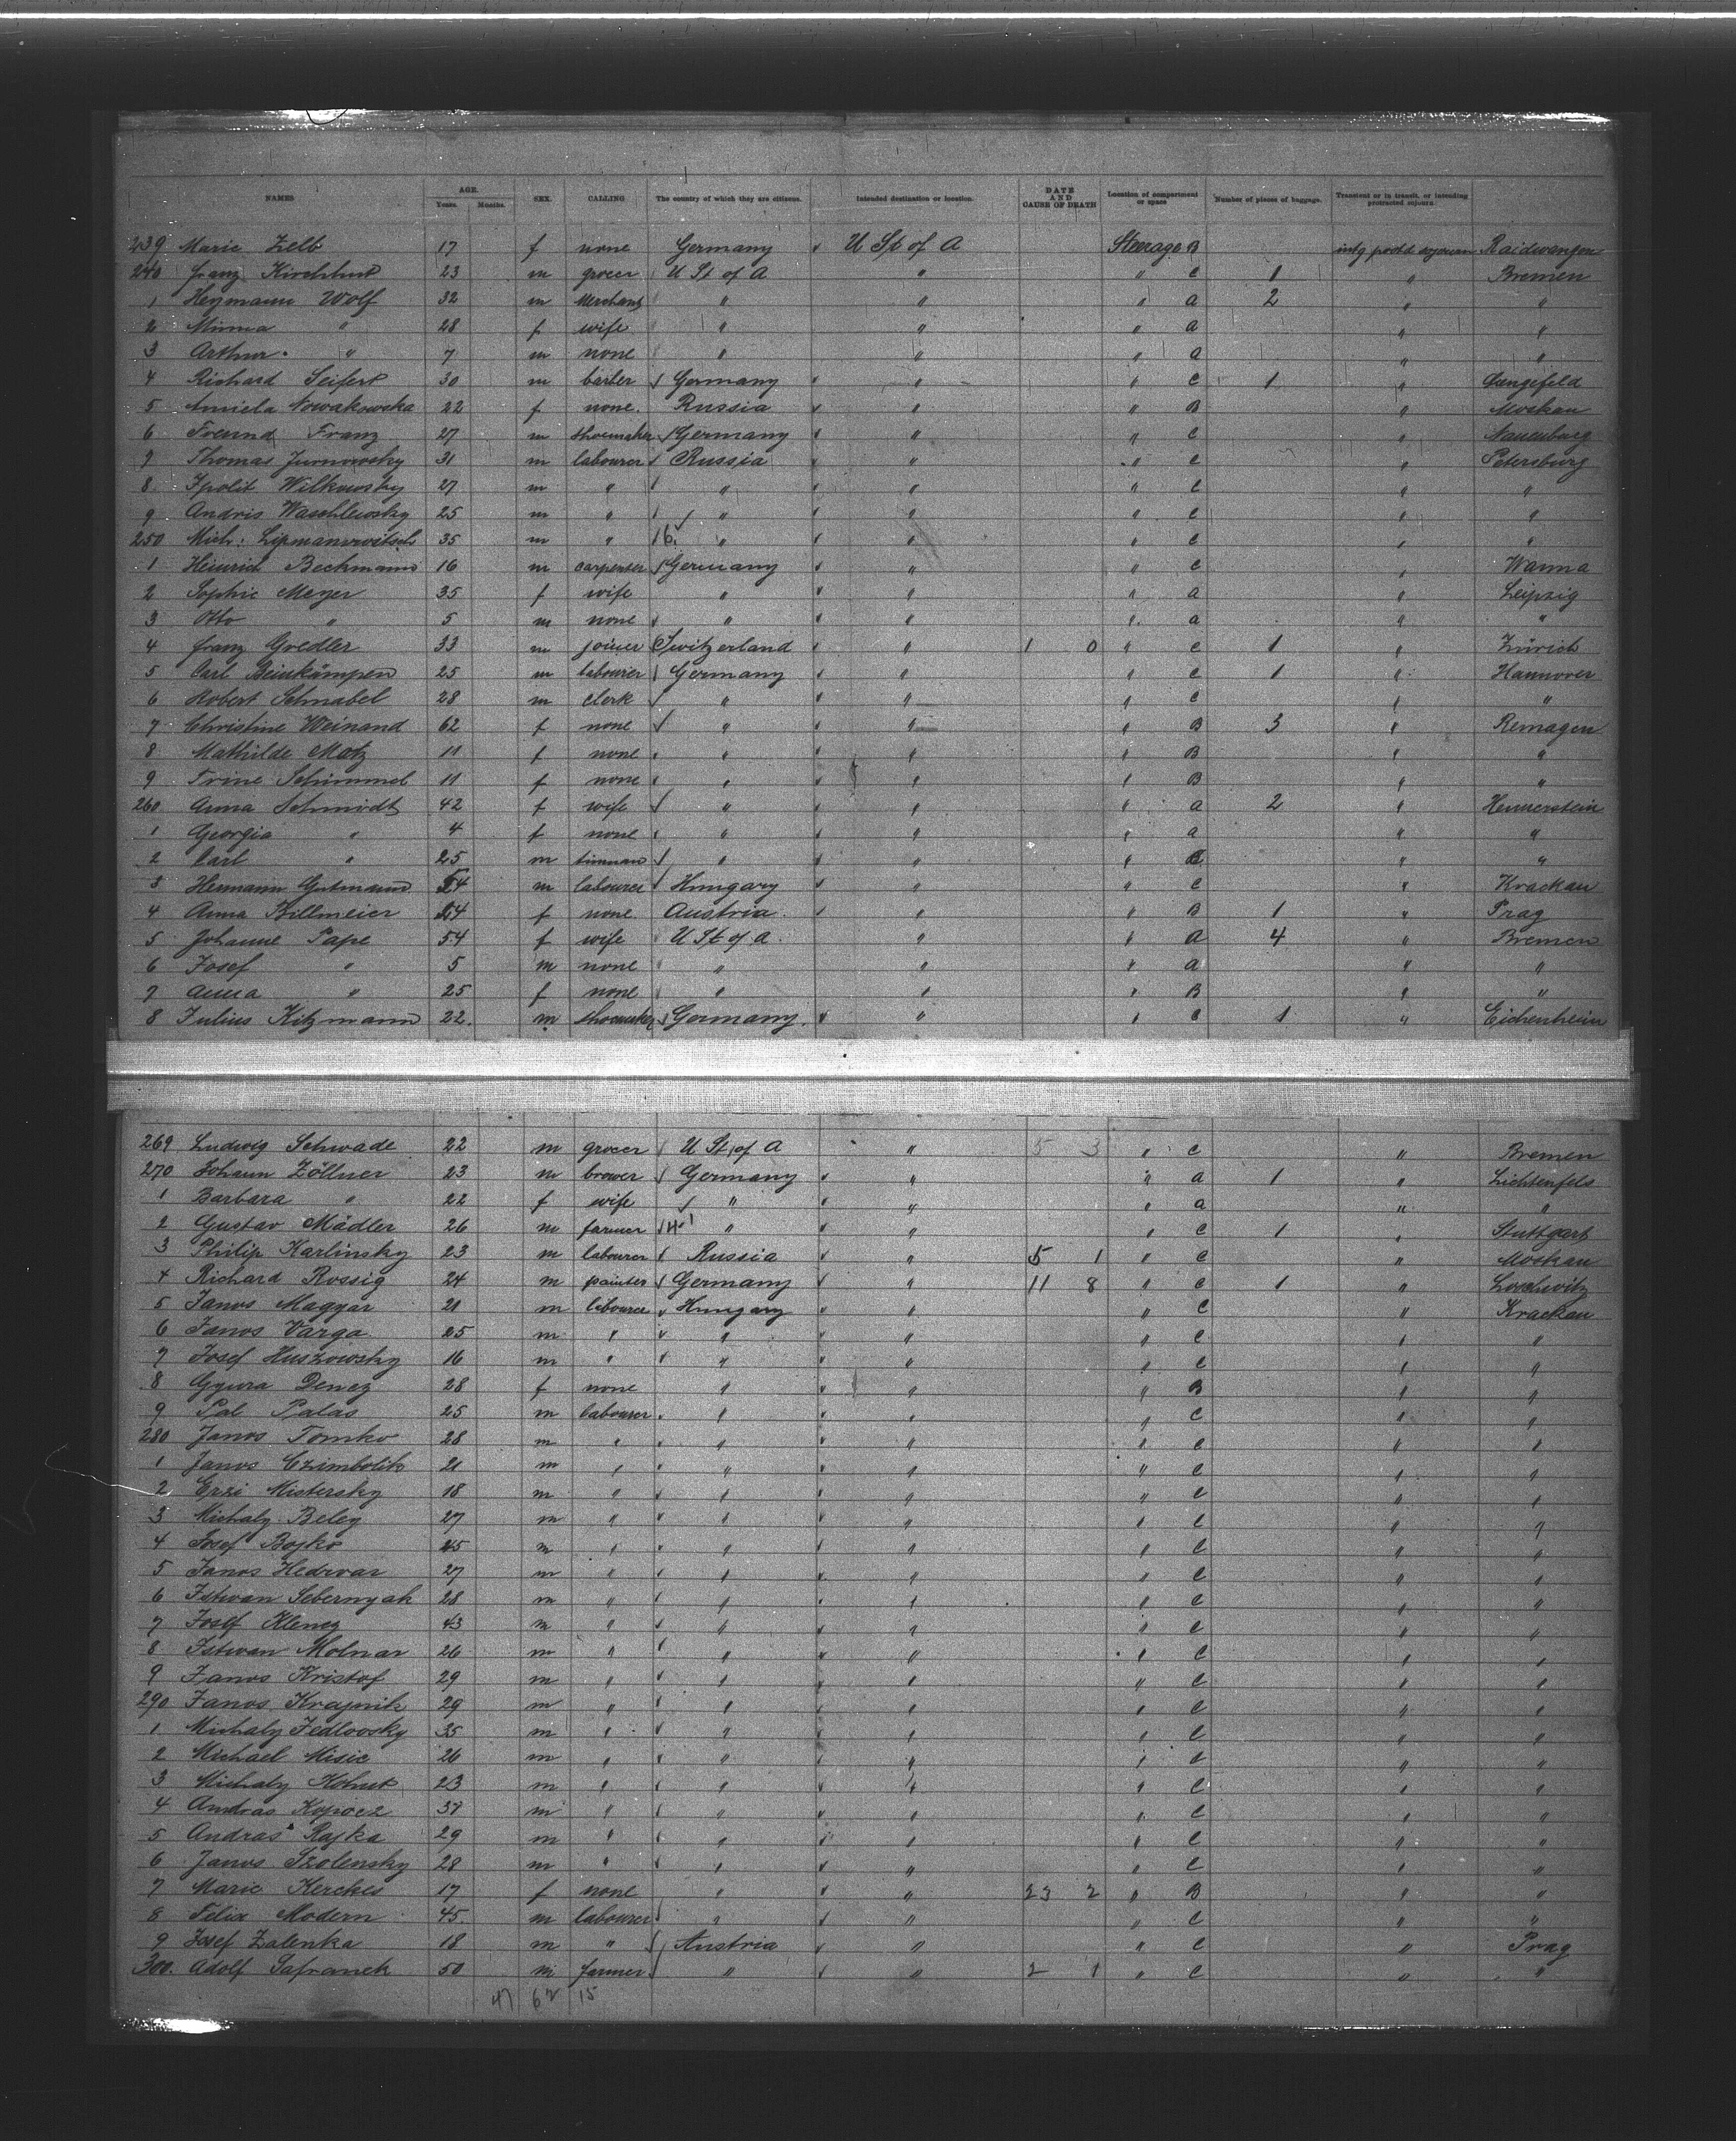 NAMES AGE. Years. Months. SEX. CALLING The country of which they are citizens. Intended destination or location. DATE AND CAUSE OF DEATH Location of compartment or space Number of pieces of baggage. Transient or in transit, or intending protracted sojourn.
239 Marie Zelb 17 f none Germany U St of A Steerage B intg protd sojourn Raidwangen
240 Franz Kirchhut 23 m grocer U St of A " " C 1 " Bremen
1 Heymann Wolf 32 m Merchant " " " a 2 " "
2 Minna " 28 f wife " " " a " "
3 Arthur " 7 m none " " " a " "
4 Richard Seifert 30 m barber Germany " " C 1 " Lengefeld
5 Amiela Nowakowska 22 f none. Russia " " B " Moskau
6 Freund Franz 27 m shoemaker Germany " " C " Nauenburg
7 Thomas Jurnowsky 31 m labourer Russia " " C " Petersburg
8 Ipolit Wilkowsky 27 m " " " " C " "
9 Andris Waschlewsky 25 m " " " " C " "
250 Mich: Lipmanowitsch 35 m " 6. " " " C " "
1 Heinrich Beckmann 16 m carpenter Germany " " C " Wanna
2 Sophie Meyer 35 f wife " " " a " Leipzig
3 Otto " 5 m none " " " a " "
4 Franz Gredler 33 m joiner Switzerland " 1 0 " C 1 " Zürich
5 Carl Beinkämpen 25 m labourer Germany " " C 1 " Hannover
6 Robert Schnabel 28 m clerk " " " C " "
7 Christine Weinand 62 f none " " " B 3 " Remagen
8 Mathilde Motz 11 f none " " " B " "
9 Trine Schimmel 11 f none " " " B " "
260 Anna Schmidt 42 f wife " " " a 2 " Hennerstein
1 Georgia " 4 f none " " " a " "
2 Carl " 25 m tinman " " " C " "
3 Hermann Gutmann 54 m labourer Hungary " " C " Krackau
4 Anna Billmeier 24 f none Austria " " B 1 " Prag
5 Johanne Pape 54 f wife U St of A. " " a 4 " Bremen
6 Josef " 5 m none " " " a " "
7 Anna " 25 f none " " " B " "
8 Julius Kitzmann 22. m shoemaker Germany. " " C 1 " Eichenheim
269 Ludwig Schwade 22 m grocer U St of A " 5 3 " C " Bremen
270 Johann Zöllner 23 m brewer Germany " " a 1 " Lichtenfels
1 Barbara " 22 f wife " " a " "
2 Gustav Mädler 26 m farmer 4 " " " C 1 " Stuttgart
3 Philip Karlinsky 23 m labourer Russia " 5 1 " C " Moskau
4 Richard Rossig 24 m painter Germany " 11 8 " C 1 " Loschwitz
5 Janos Magyar 21 m labourer Hungary " " C " Krackau
6 Janos Varga 25 m " " " " C " "
7 Josef Huszowsky 16 m " " " " C " "
8 Gyura Dencz 28 f none " " " B " "
9 Pal Palas 25 m labourer " " " C " "
280 Janos Tomko 28 m " " " " C " "
1 Janos Czimbolik 21 m " " " " C " "
2 Erzi Mistersky 18 m " " " " C " "
3 Michaly Beley 27 m " " " " C " "
4 Josef Bojko 45 m " " " " C " "
5 Janos Hedrvar 27 m " " " " C " "
6 Istwan Sebernyak 28 m " " " " C " "
7 Josef Klencz 43 m " " " " C " "
8 Istwan Molnar 26 m " " " " C " "
9 Janos Kristof 29 m " " " " C " "
290 Janos Krajnik 29 m " " " " C " "
1 Michaly Jedlovsky 35 m " " " " C " "
2 Michael Misic 26 m " " " " C " "
3 Michaly Kohut 23 m " " " " C " "
4 Andras Kopocz 37 m " " " " C " "
5 Andras Rajka 29 m " " " " C " "
6 Janos Szolensky 28 m " " " " C " "
7 Marie Kerckes 17 f none " " 23 2 " B " "
8 Felix Modern 45. m labourer " " " C " "
9 Josef Zalenka 18 m " Austria " " C " Prag
300. Adolf Safranek 50 m farmer " " 2 1 " C " "
47 62 15